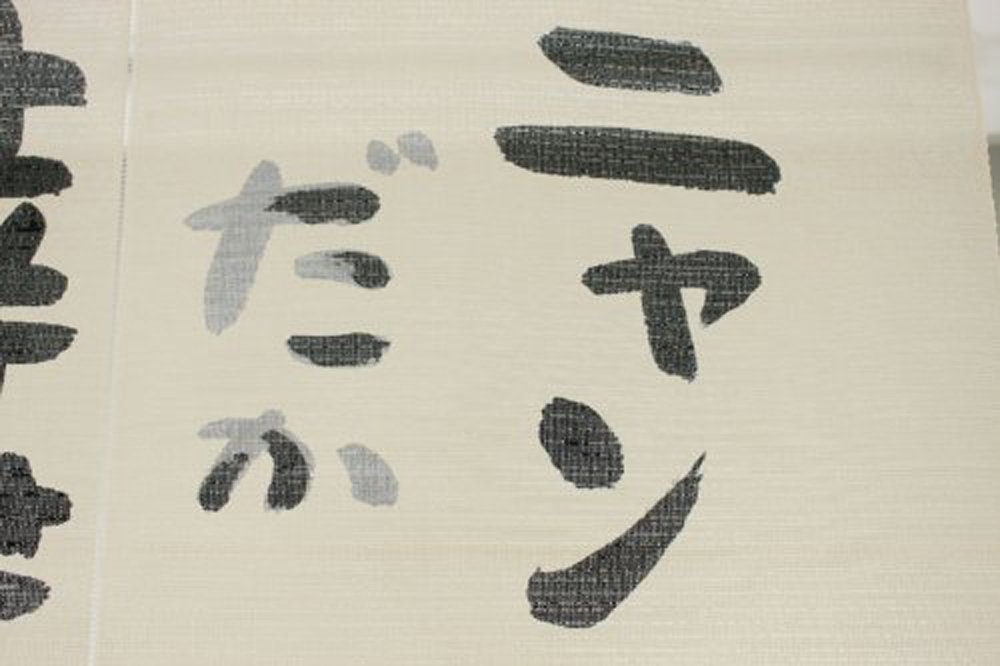 ニャン
だか